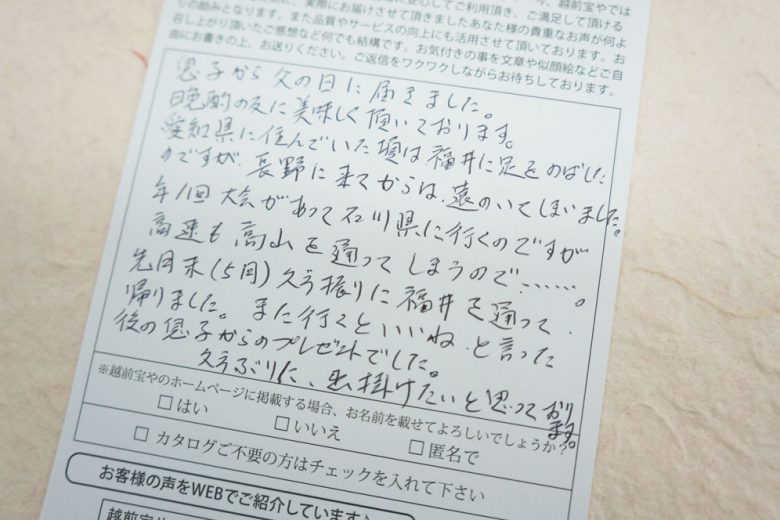 に安心してご利用頂き、ご満足して頂ける
りの励みとなります。また品質やサービスの向上にも活用させて頂いております。お
召し上がり頂いたご感想など何でも結構です。お気付きの事を文章や似顔絵などご自
由にお書きの上、お送りください。ご返信をワクワクしながらお待ちしております。
息子から父の日に届きました。
晩酌の友に美味しく頂いております。
愛知県に住んでいた頃は福井に足をのばした
のですが、長野に来てからは、遠のいてしまいました。
年1回大会があって石川県に行くのですが
高速も高山を通ってしまうので……。
先月末(5月)久う振りに福井を通って、
帰りました。また行くといいね と言った
後の息子からのプレゼントでした。
久うぶりに、出掛けたいと思っております。
※越前宝やのホームページに掲載する場合、お名前を載せてよろしいでしょうか?
□ はい □ いいえ □ 匿名で
□ カタログご不要の方はチェックを入れて下さい
お客様の声をWEBでご紹介しています♪